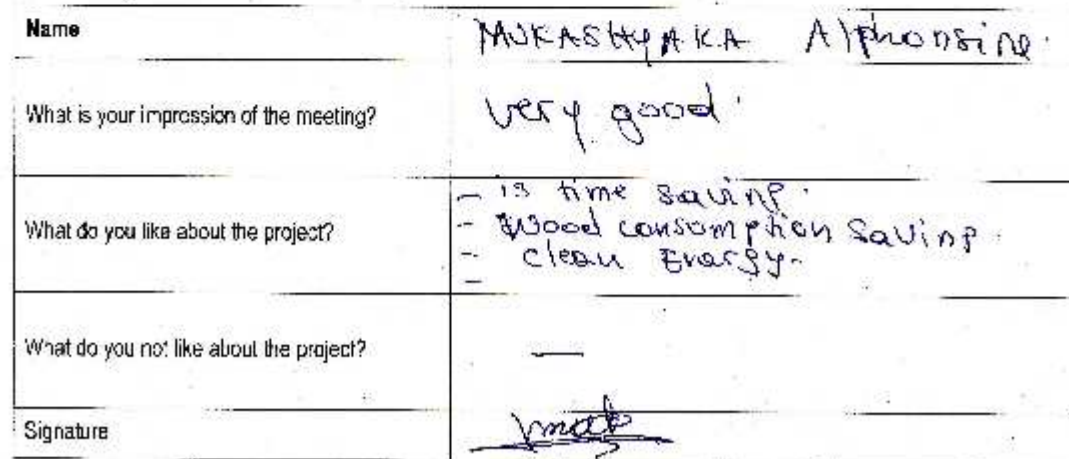 Name MUKASHYAKA Alphonsine.
What is your impression of the meeting? very good.
- is time saving.
What do you like about the project? - Wood consumption saving.
- clean Energy.
-
What do you not like about the project? —
Signature